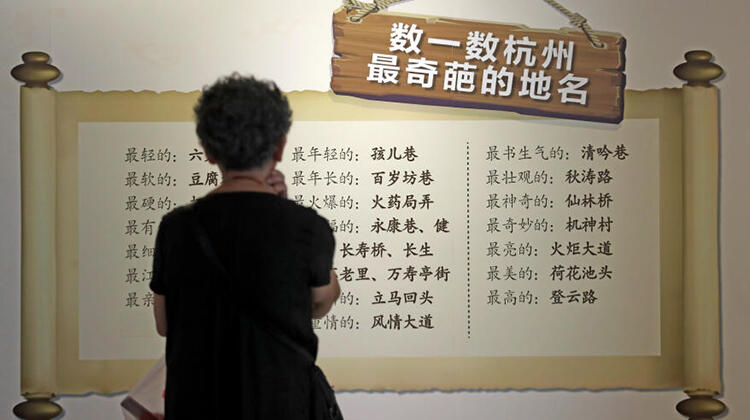 数一数杭州
最奇葩的地名
最轻的：六
最软的：豆腐
最硬的：
最有
最细
最江
最亲
最年轻的：孩儿巷
最年长的：百岁坊巷
最火爆的：火药局弄
的：永康巷、健
长寿桥、长生
老里、万寿亭街
的：立马回头
情的：风情大道
最书生气的：清吟巷
最壮观的：秋涛路
最神奇的：仙林桥
最奇妙的：机神村
最亮的：火炬大道
最美的：荷花池头
最高的：登云路